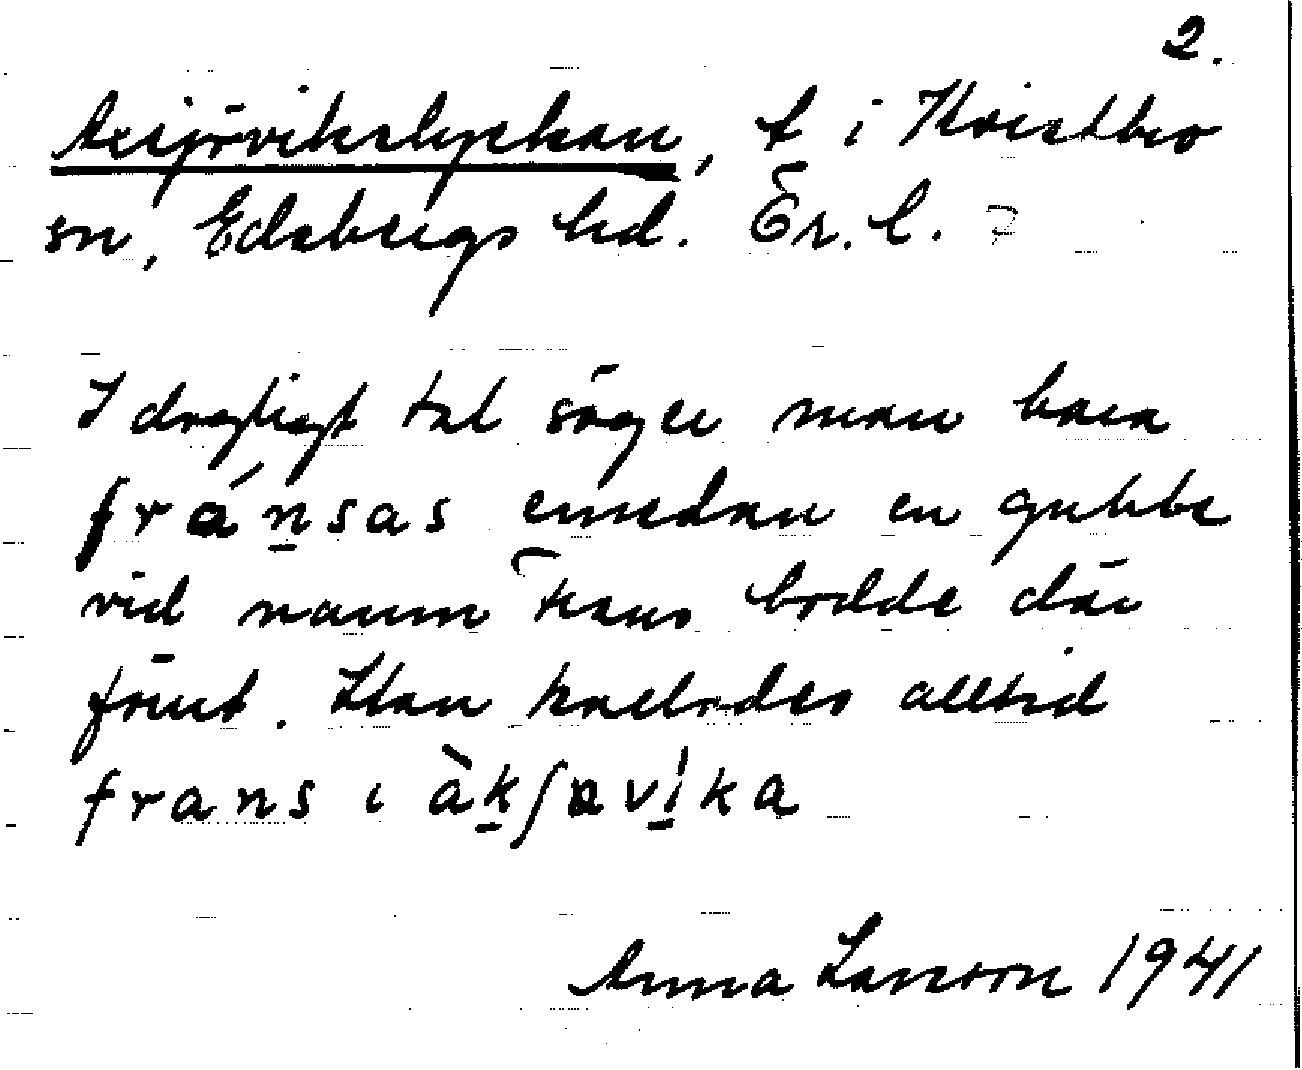 2.
Axsjövikslyckan, t i Kvistbro
sn, Edsbergs hd. Ör. l.
I dagligt tal säger man bara
fránsas emedan en gubbe
vid namn Frans bodde där
förut. Han kallades alltid
frans i àkʃavìka
Anna Larsson 1941